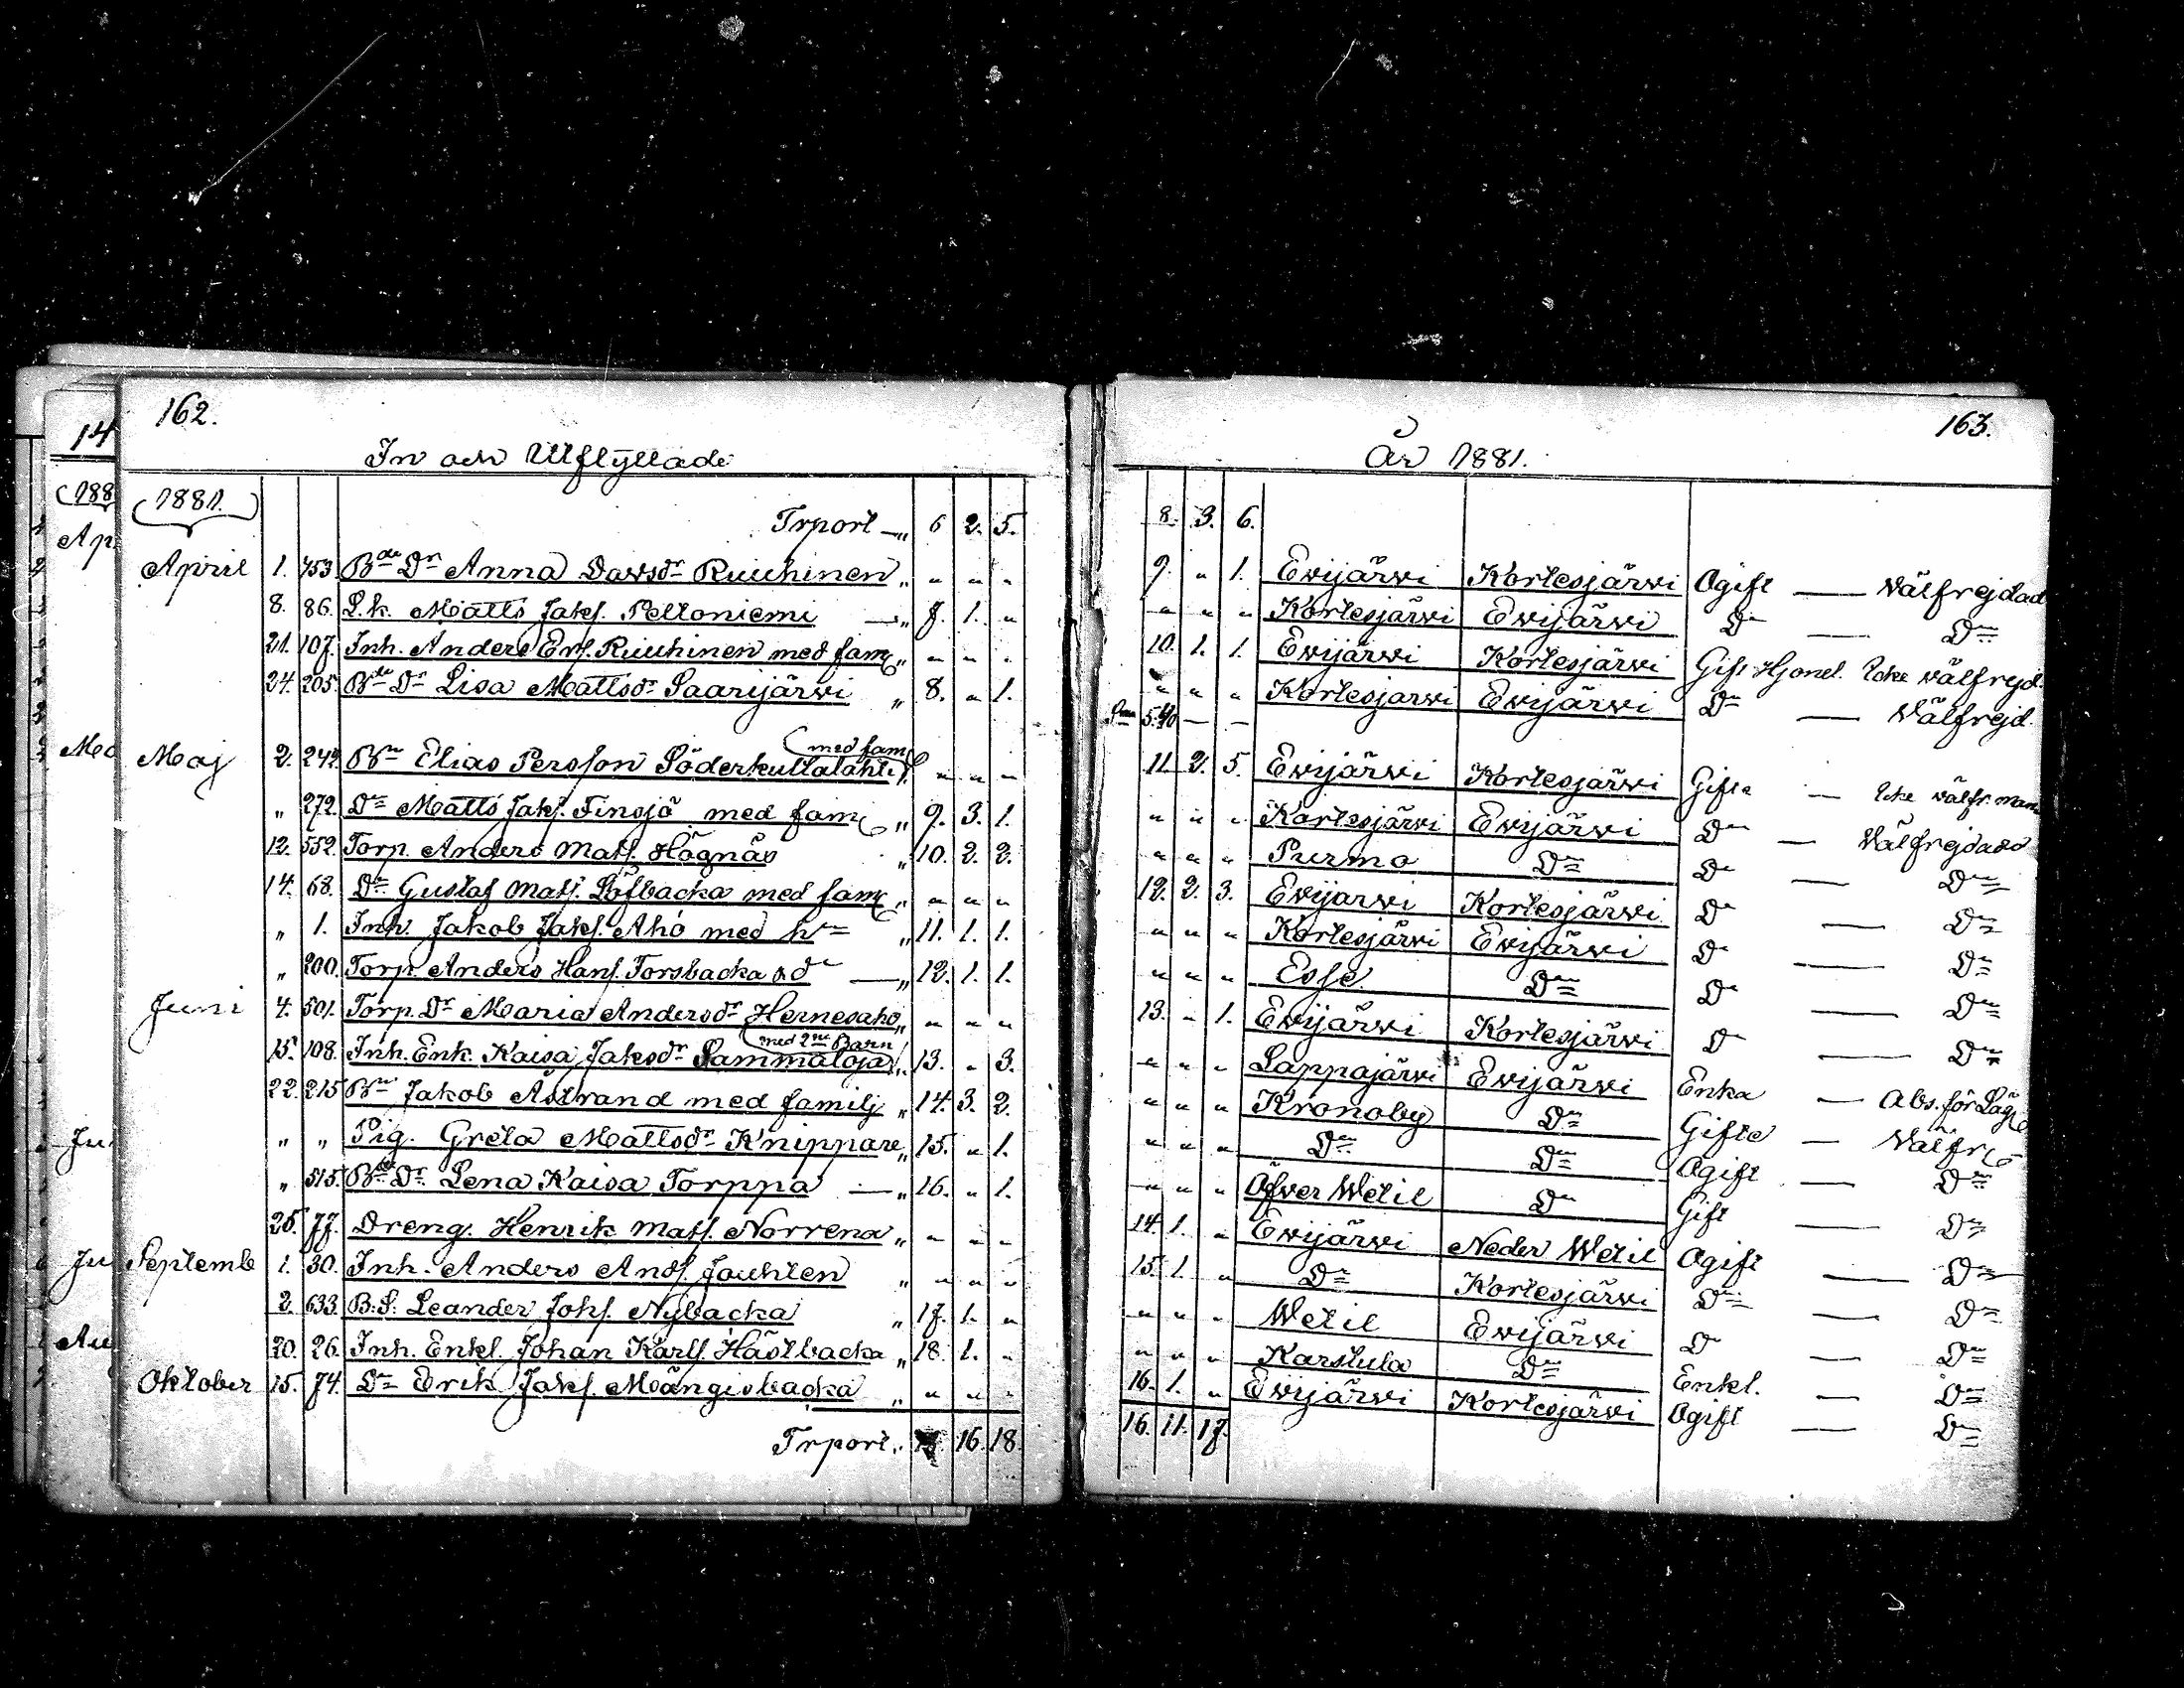 162.
In och Utflyttade
1881.
Trport 6 2. 5.
April 1. 453. Bde Dr Anna Davsdr Ruuhinen " " " "
8. 86. L.k. Matts Jaks. Peltoniemi — " 7. 1. "
21. 107. Inh. Anders Ers. Ruuhinen med famj " " " "
24. 205. Bde Dr Lisa Mattsdr Saarijärvi " 8. " 1.
med fam
Maj 2. 242. Bn Elias Persson Söderkultalahti " " " "
" 272. Do Matts Jaks. Finsjö med famj " 9. 3. 1.
12. 552. Torp. Anders Mats. Högnäs " 10. 2. 2.
14. 68. Do Gustaf Mats. Löfbacka med famj " " " "
" 1. Inh. Jakob Jaks. Aho med hu " 11. 1. 1.
" 200. Torp. Anders Hans. Torsbacka o do — " 12. 1. 1.
Juni 4. 501. Torp. Dr Maria Andersdr Hernesaho " " " "
med 2ne Barn
15. 108. Inh. Enk. Kaisa Jaksdr Sammaloja " 13. " 3.
22. 215 Bn Jakob Åstrand med familj " 14. 3. 2.
" " Pig. Greta Mattsdr Knippare " 15. " 1.
" 515. Bde Dr Lena Kaisa Torppa — " 16. " 1.
25. 77. Dreng. Henrik Mats. Norrena " " " "
Septemb 1. 30. Inh. Anders Ands. Jouhten " " " "
2. 633. B.S. Leander Johs. Nybacka " 17. 1. "
20. 26. Inh. Enkl. Johan Karls. Hästbacka " 18. 1. "
Oktober 15. 74. Do Erik Jaks. Mängisbacka " " " "
Trport. 16. 18.
163.
År 1881.
8. 3. 6.
9. " 1. Evijärvi Kortesjärvi Ogift — Välfrejdad
" " " Kortesjärvi Evijärvi Do — Do
10. 1. 1. Evijärvi Kortesjärvi Gift Hjonel. Icke välfrejd.
" " " Kortesjärvi Evijärvi Do — Välfrejd.
5:40 — —
11. 2. 5. Evijärvi Kortesjärvi Gifta — Icke välfr. man
" " " Kortesjärvi Evijärvi Do — Välfrejdade
" " " Purmo Do Do — Do
12. 2. 3. Evijärvi Kortesjärvi Do — Do
" " " Kortesjärvi Evijärvi Do — Do
" " " Esse Do Do — Do
13. " 1. Evijärvi Kortesjärvi Do — Do
" " " Lappajärvi Evijärvi Enka — Abs. för Läg
" " " Kronoby Do Gifte — Välfr
" " " Do Do Ogift — Do
" " " Öfver Wetil Do Gift — Do
14. 1. " Evijärvi Neder Wetil Ogift — Do
15. 1. " Do Kortesjärvi Do — Do
" " " Wetil Evijärvi Do — Do
" " " Karstula Do Enkl. — Do
16. 1. " Evijärvi Kortesjärvi Ogift — Do
16. 11. 17.